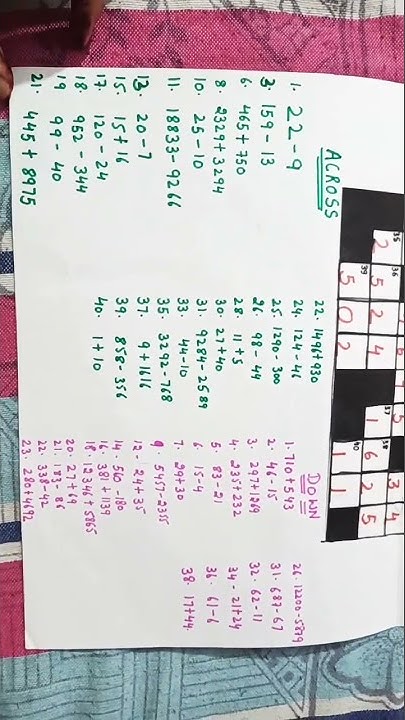 ACROSS
1. 22-9
3. 159-13
6. 465+750
8. 2329+3294
10. 25-10
11. 18833-9266
13. 20-7
15. 15+16
17. 120-24
18. 952-344
19. 99-40
21. 445+8975
22. 1496+930
24. 124-46
25. 1290-300
26. 98-49
28. 11+5
30. 27+40
31. 9284-2589
33. 44-10
35. 3292-768
37. 9+1616
39. 858-356
40. 1+10
DOWN
1. 710+543
2. 46-15
3. 297+1269
4. 235+232
5. 83-21
6. 15-4
7. 29+30
9. 5457-2355
12. 24+35
14. 560-180
16. 381+1139
18. 12346-5865
20. 27+69
21. 183-86
22. 338-42
23. 284+4692
26. 12200-5879
31. 687-67
32. 62-11
34. 21+24
36. 61-6
38. 17+44
3 4
35 2 36 5 2 4 37 1 38 6 2 5
39 5 0 2 40 1 1